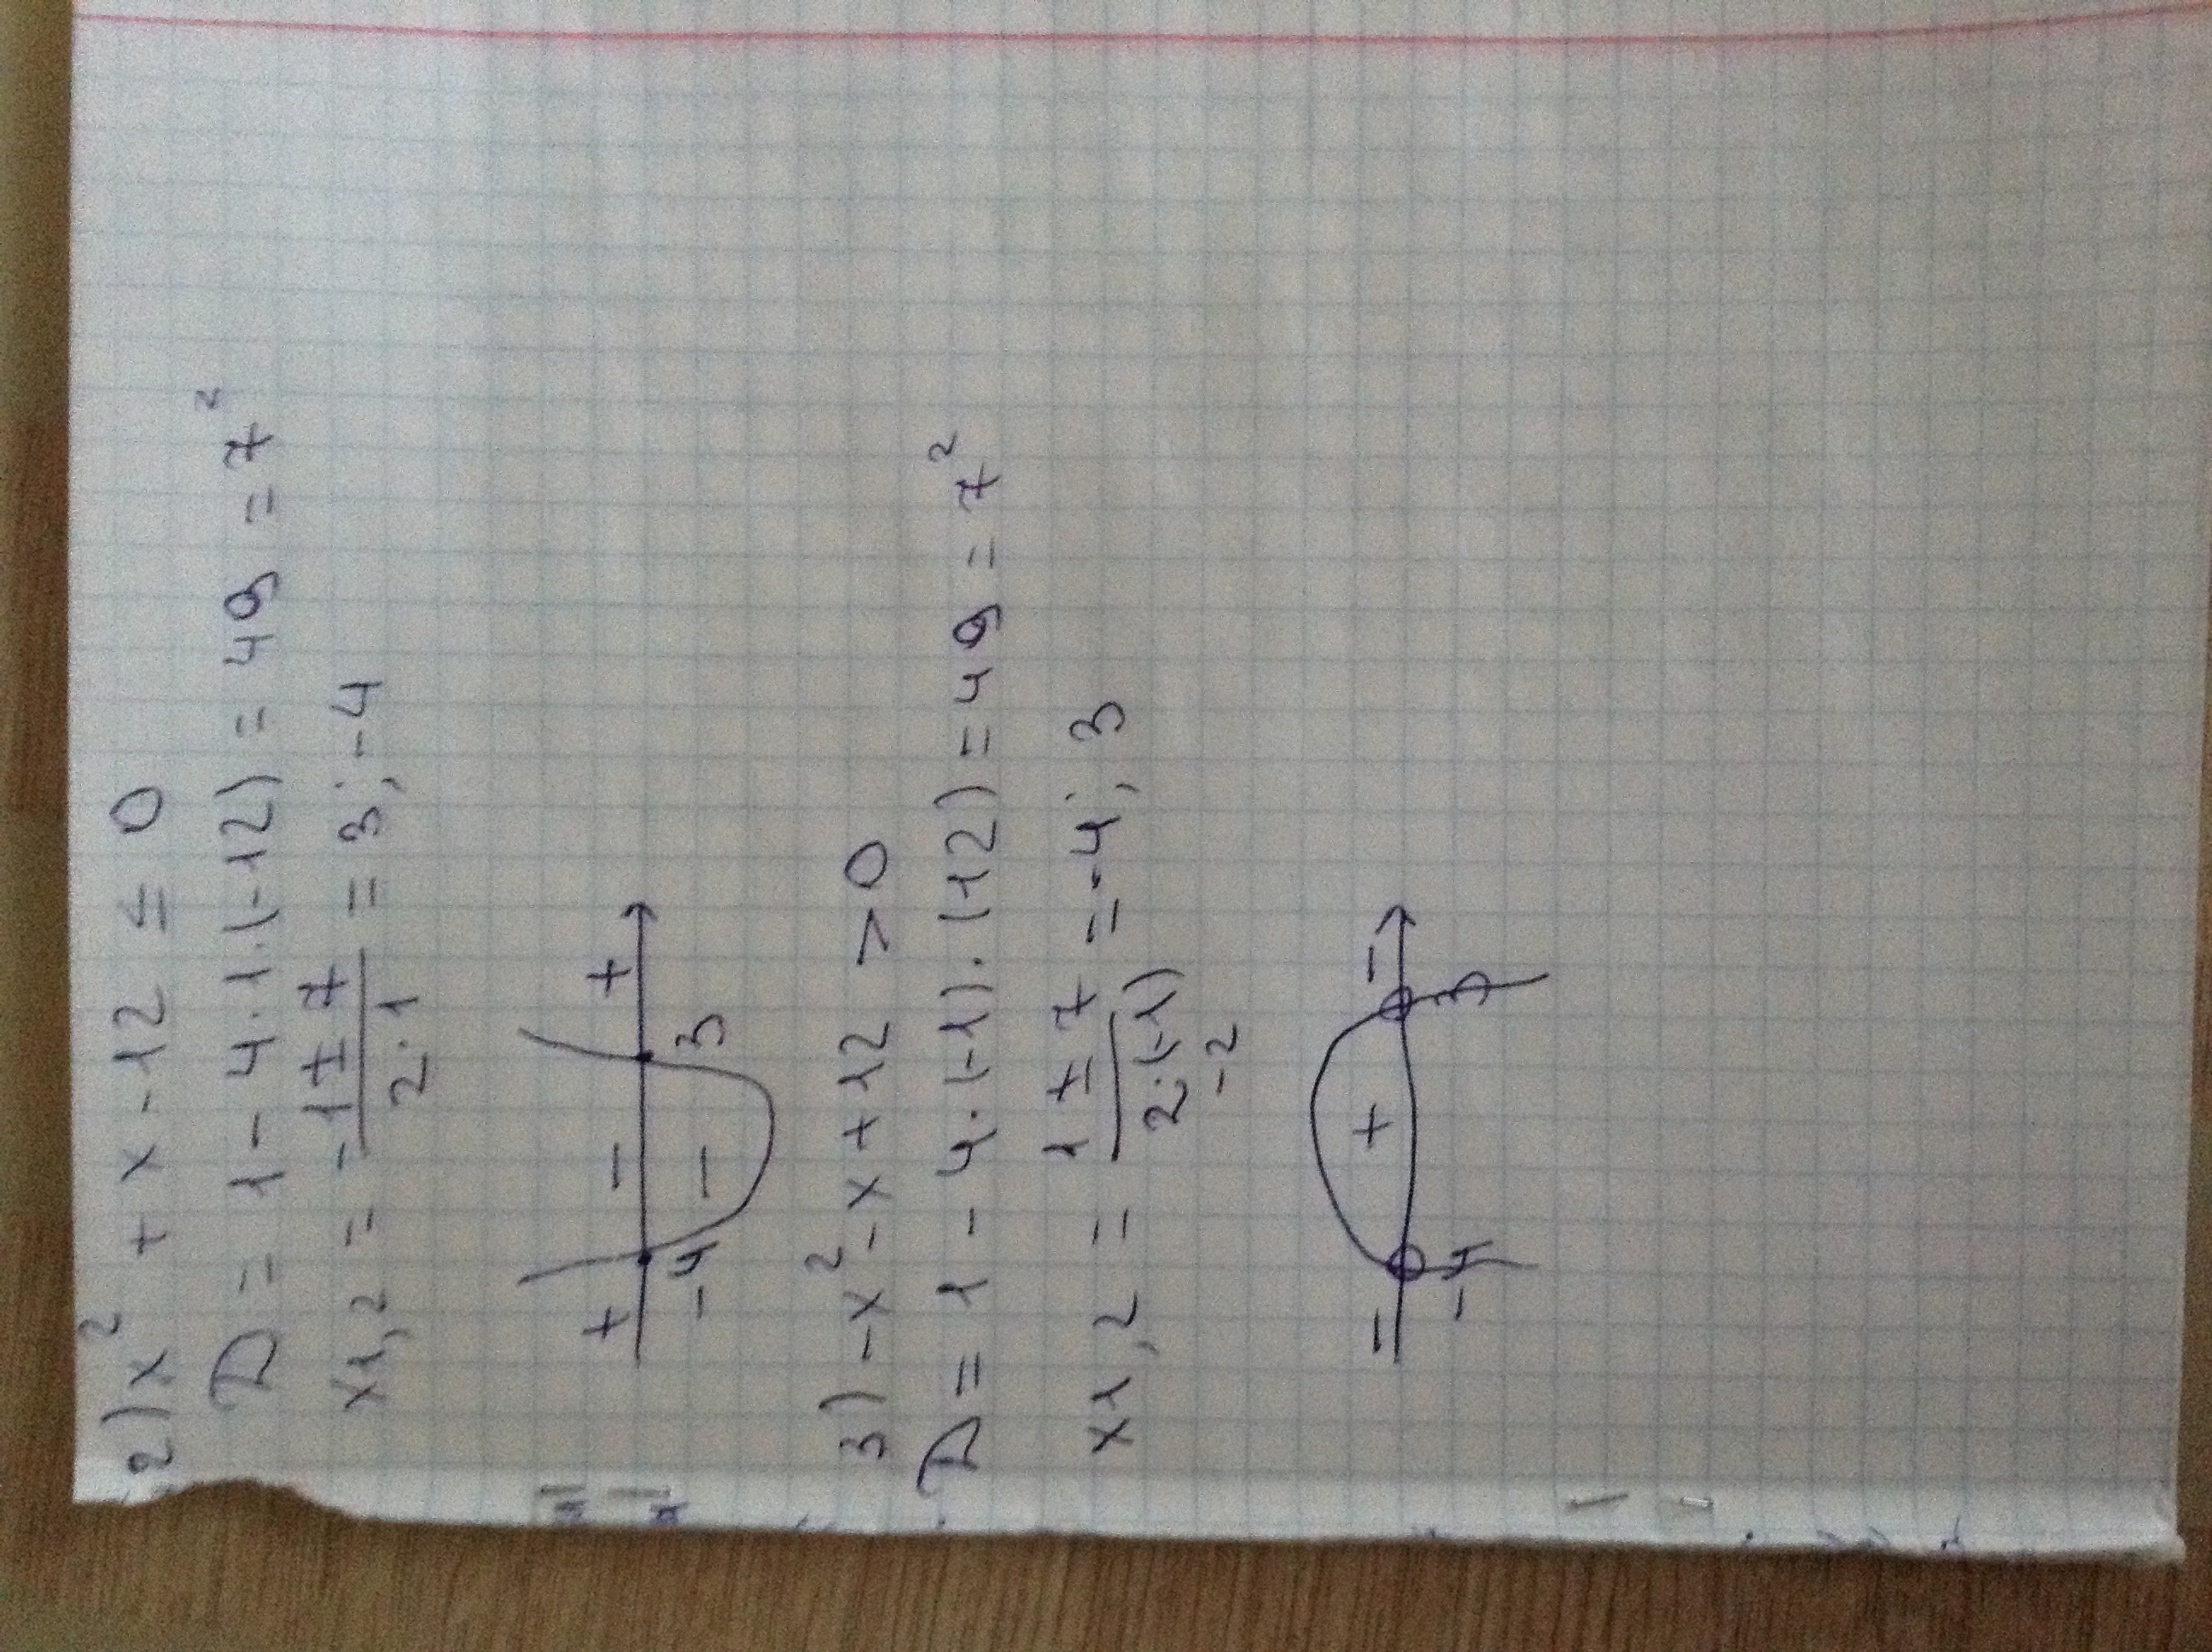 2) x² + x - 12 ≤ 0
D = 1 - 4 · 1 · (-12) = 49 = 7²
x1,2 = -1 ± 7 / 2 · 1 = 3; -4
+ - +
-
-4 3
3) -x² - x + 12 > 0
D = 1 - 4 · (-1) · (12) = 49 = 7²
x1,2 = 1 ± 7 / 2 · (-1) = -4; 3
-2
- + -
-4 3